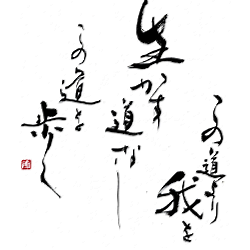 この道より
我を
生かす
道なし
この道を
歩く